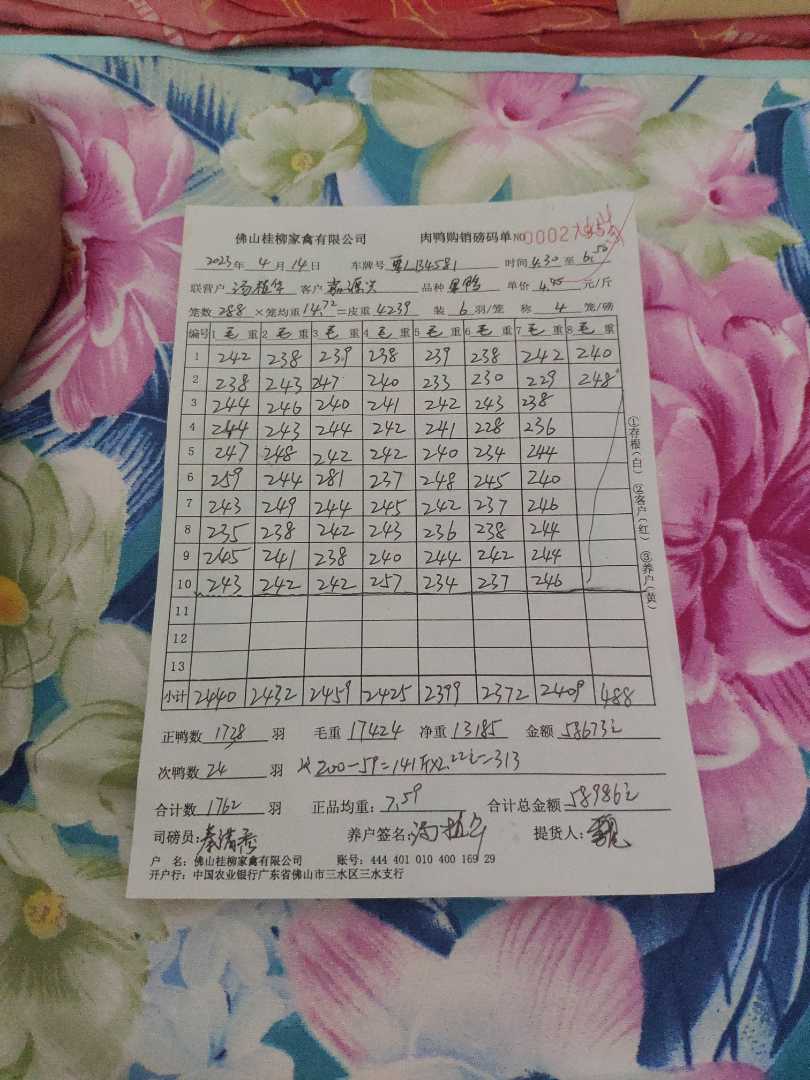 佛山桂柳家禽有限公司 肉鸭购销磅码单 NO 00027
2023年 4月 14日 车牌号 粤LB4581 时间 4.30 至 6.50
联营户 冯植 客户 嘉源兴 品种 果鸭 单价 4.45 元/斤
笼数 288 ×笼均重 14.72 =皮重 4239 装 6 羽/笼 称 4 笼/磅
编号 1 毛 重 2 毛 重 3 毛 重 4 毛 重 5 毛 重 6 毛 重 7 毛 重 8 毛 重
1 242 238 239 238 239 238 242 240
2 238 243 247 240 233 230 229 248
3 244 246 240 241 242 243 238
4 244 243 244 242 241 228 236
5 247 248 242 242 240 234 244
6 259 244 281 237 248 245 240
7 243 249 244 245 242 237 246
8 235 238 242 243 236 238 244
9 245 241 238 240 244 242 244
10 243 242 242 257 234 237 246
11
12
13
小计 2440 2432 2459 2425 2399 2372 2409 488
①存根(白) ②客户(红) ③养户(黄)
正鸭数 1738 羽 毛重 17424 净重 13185 金额 58673元
次鸭数 24 羽 200-59=141斤×2.22元=313
合计数 1762 羽 正品均重: 7.59 合计总金额 58986元
司磅员: 养户签名: 冯植 提货人:
户 名: 佛山桂柳家禽有限公司 账号: 444 401 010 400 169 29
开户行: 中国农业银行广东省佛山市三水区三水支行